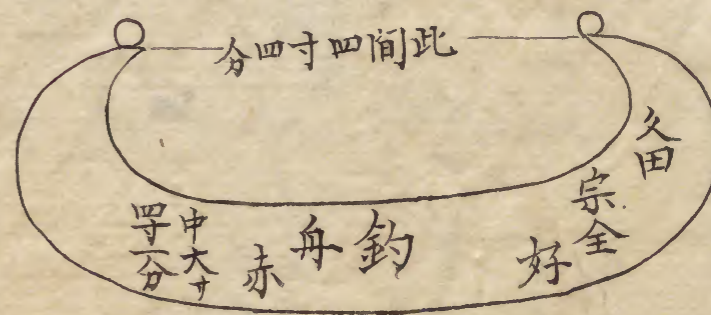 此間四寸四分
久田
宗全
好
釣舟
赤
中大サ
四寸一分